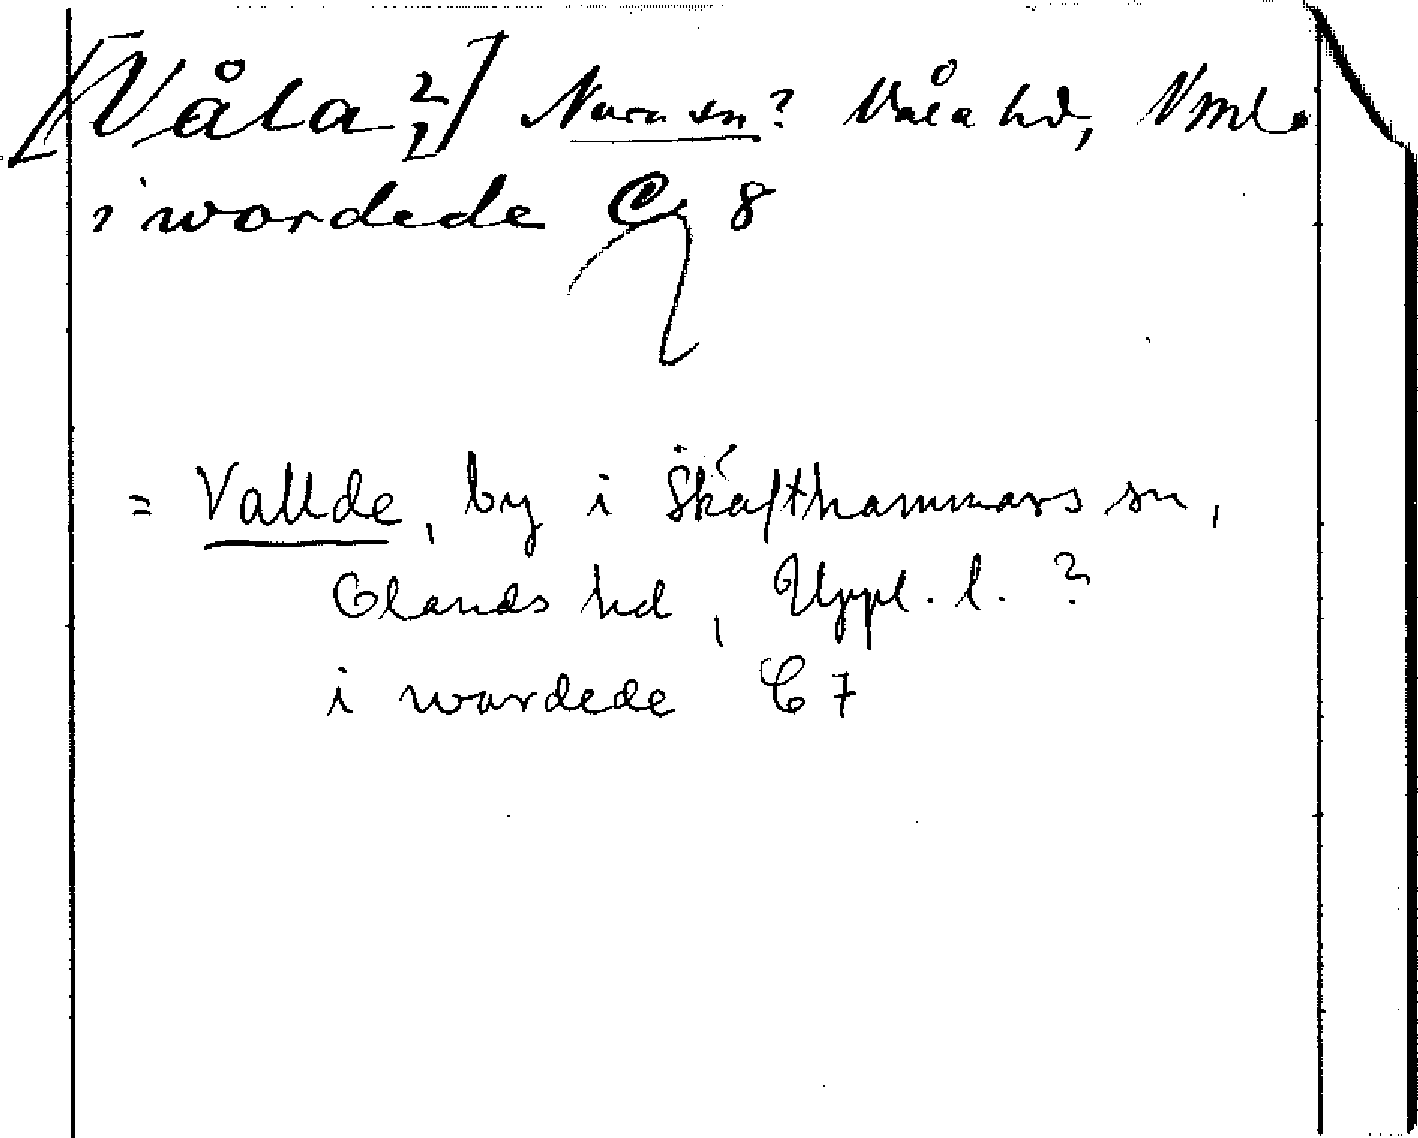 [Våla?] Nora sn? Våla hd, Vml.
i wordede C 8
= Vallde, by i Skäfthammars sn,
Olands hd, Uppl. l. ?
i wordede C 7